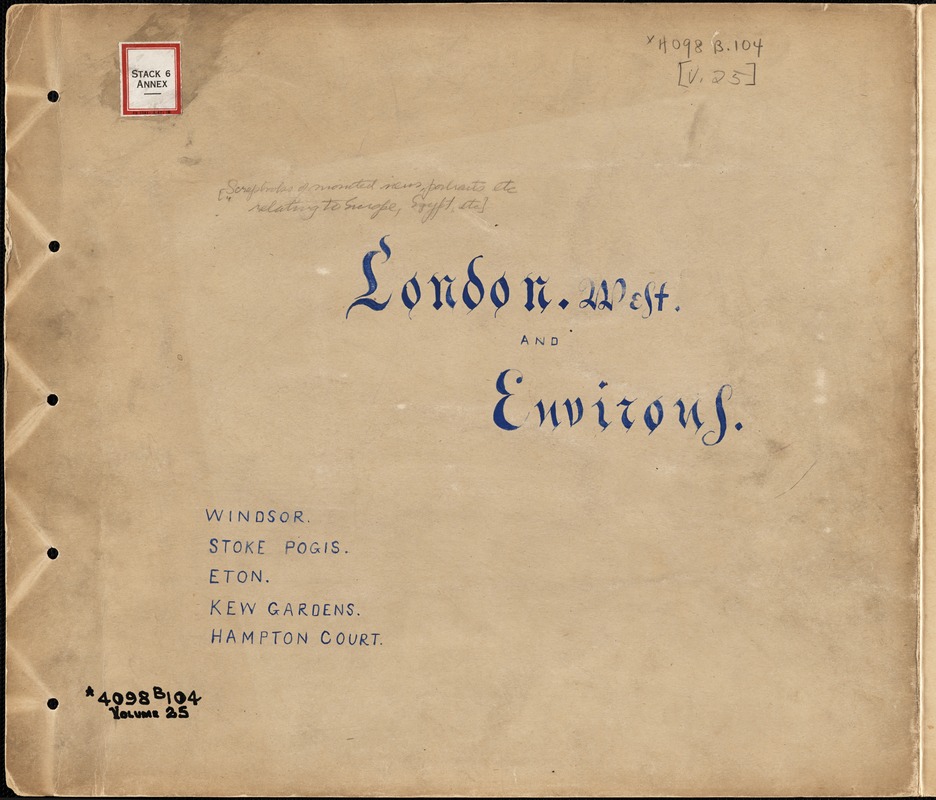 STACK 6
ANNEX
*4098 B.104
[V. 25]
[Scrapbooks of mounted views, portraits etc
relating to Europe, Egypt, etc]
London. West.
AND
Environs.
WINDSOR.
STOKE POGIS.
ETON.
KEW GARDENS.
HAMPTON COURT.
*4098 B104
VOLUME 25